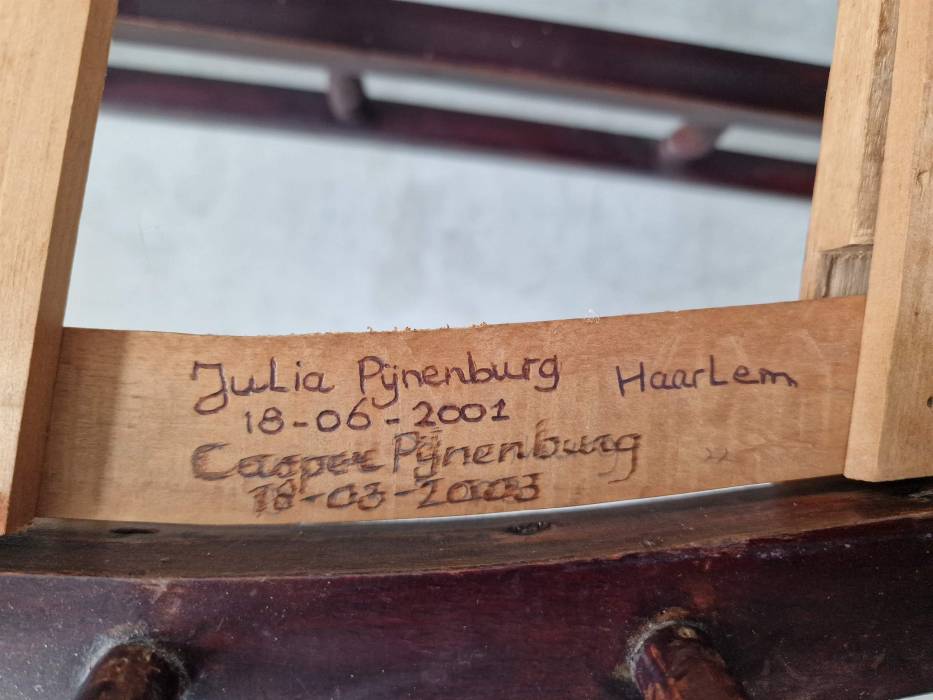 Julia Pijnenburg Haarlem
18-06-2001
Casper Pijnenburg
18-03-2003